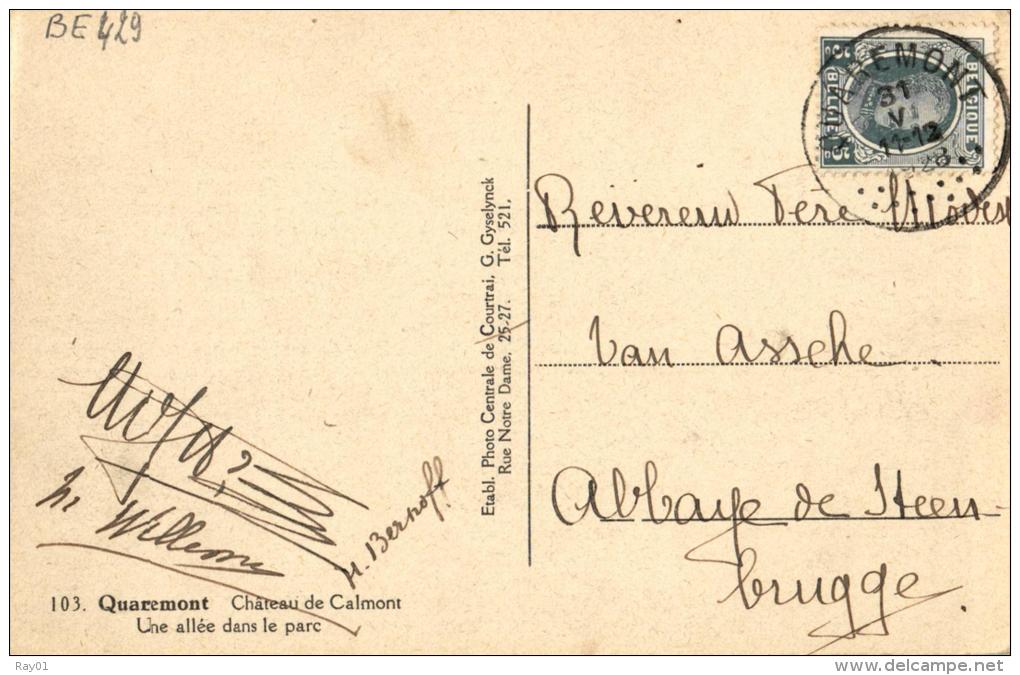 BE 429
BELGIQUE
5c BELGIE 5c
QUAREMONT
31
VI
11-12
1928
Reverend Père Modes
Van Assche.
Abbaye de Steen-
brugge.
Etabl. Photo Centrale de Courtrai, G. Gyselynck
Rue Notre Dame, 25-27. Tél. 521.
Willems
H. Berhoff
103. Quaremont Château de Calmont
Une allée dans le parc
Ray01
www.delcampe.net